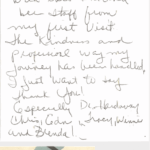 been staff from
my first visit
The kindness and
professional way my
journey has been handled,
I just want to say
Thank you!
Especially Dr. Hardway
Chris, Edn, Tracy,
and Brenda!